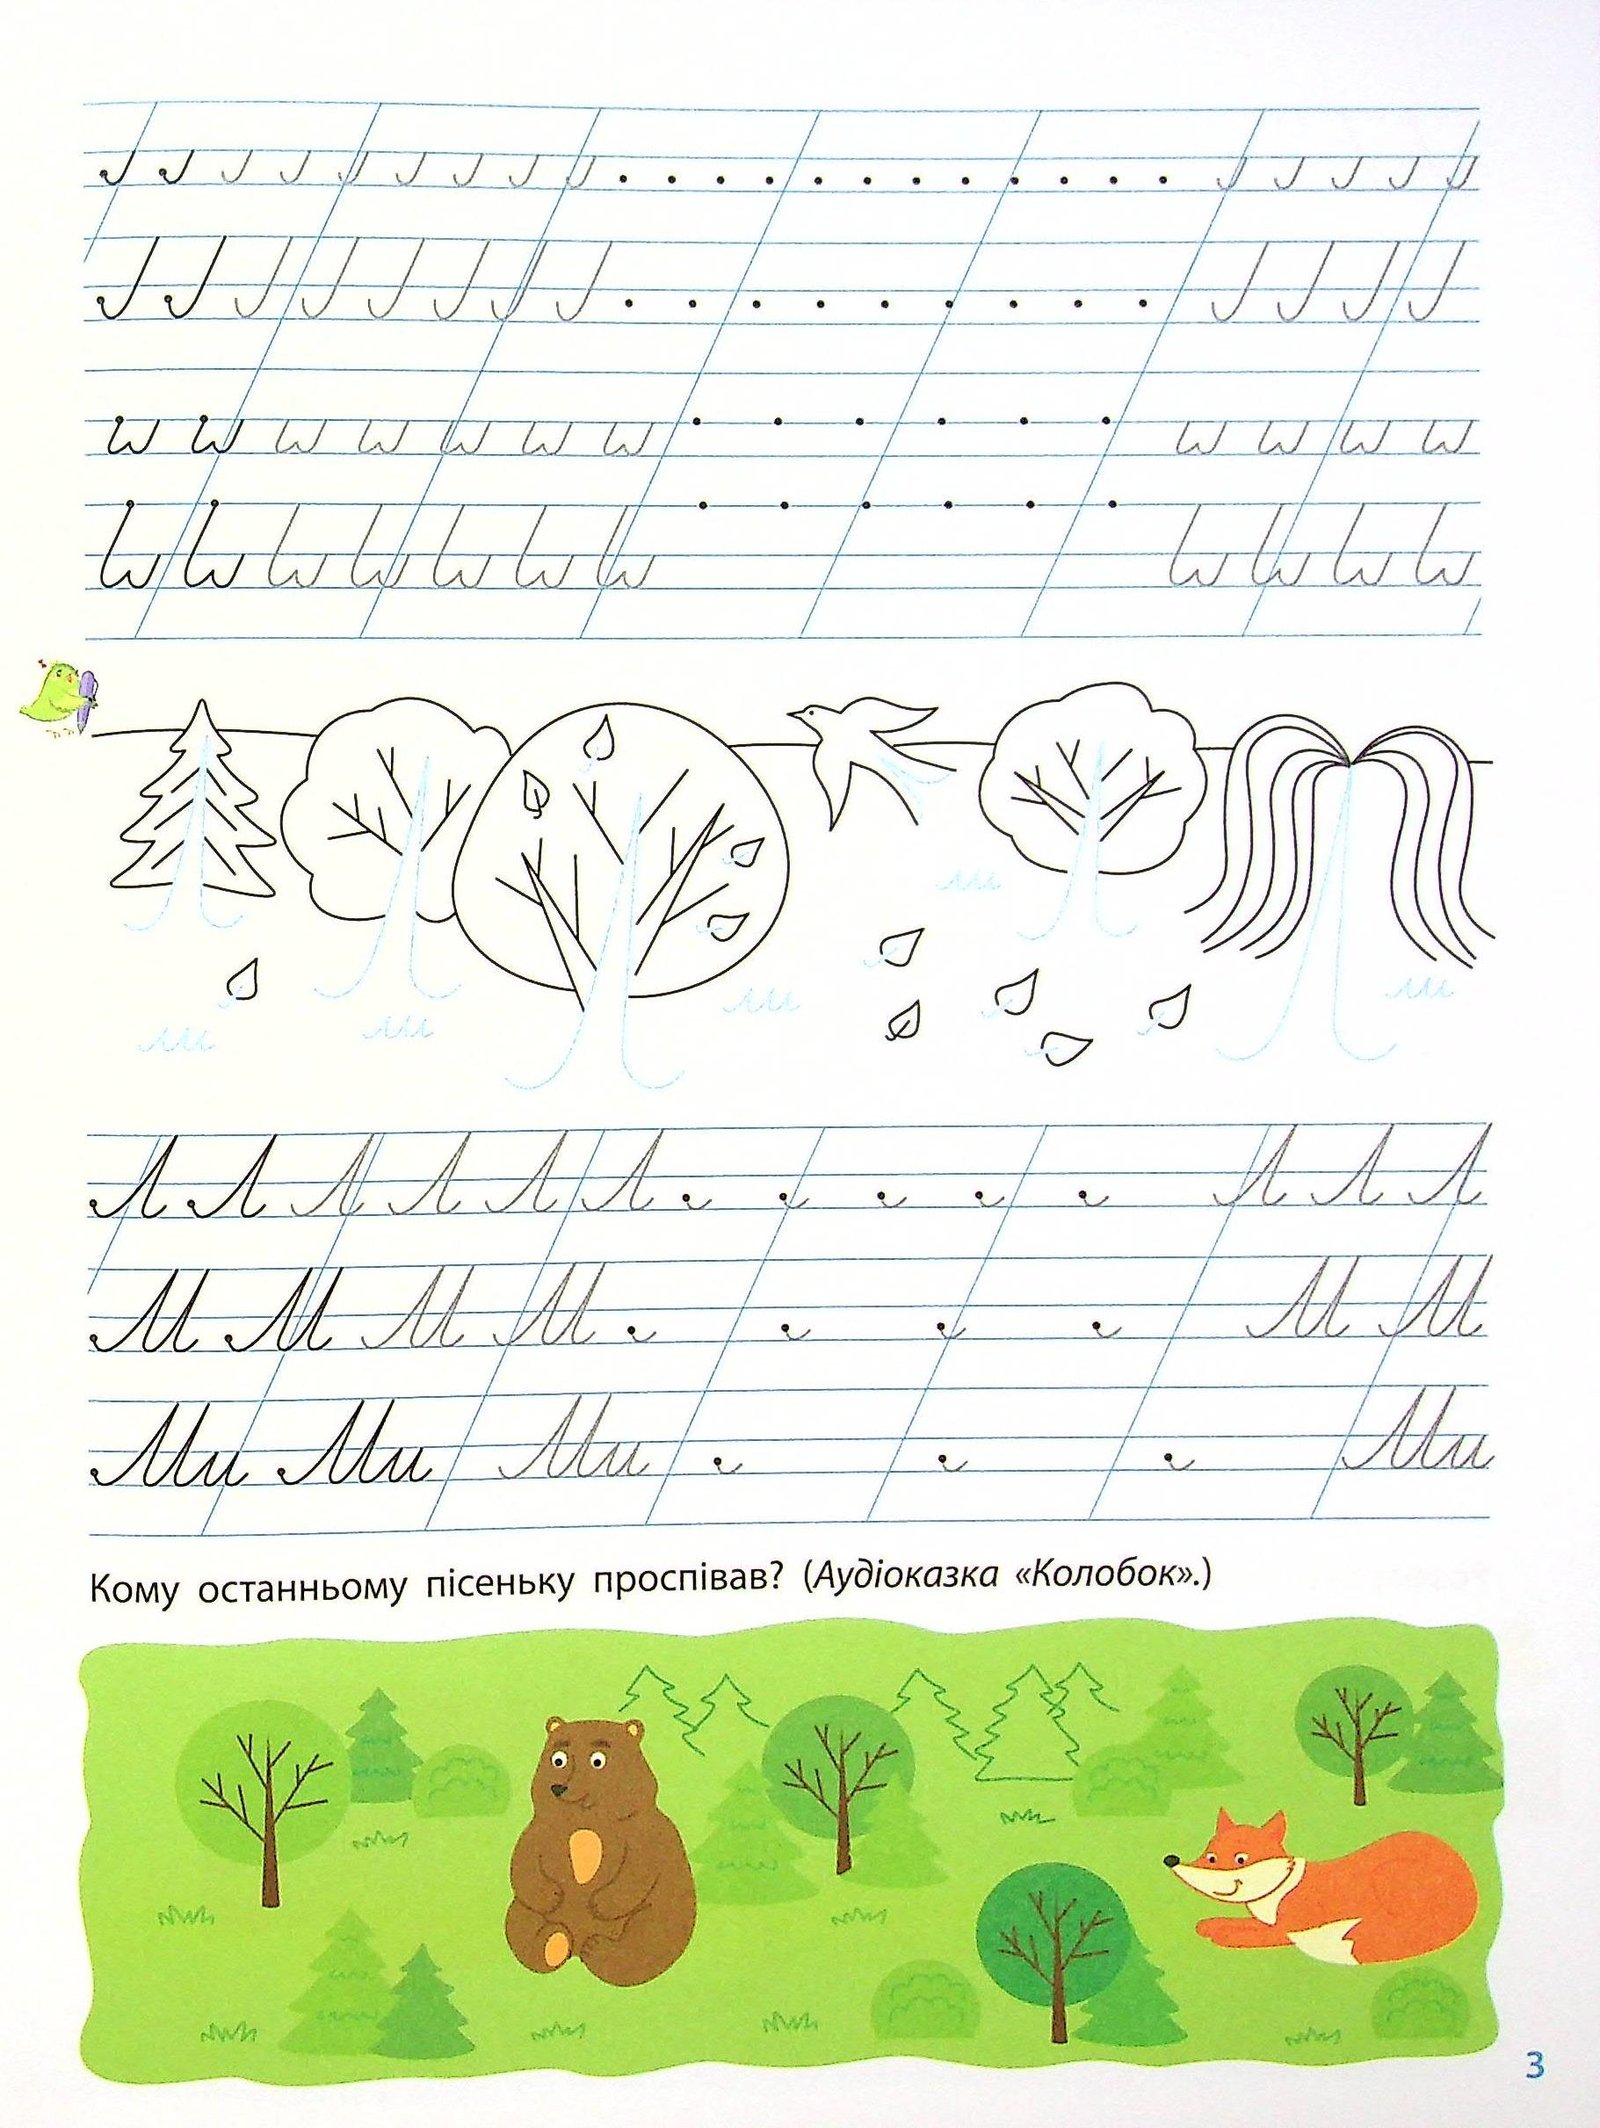 Л Л Л Л Л Л Л Л Л
М М М М М М
Ми Ми Ми Ми
Кому останньому пісеньку проспівав? (Аудіоказка «Колобок».)
3